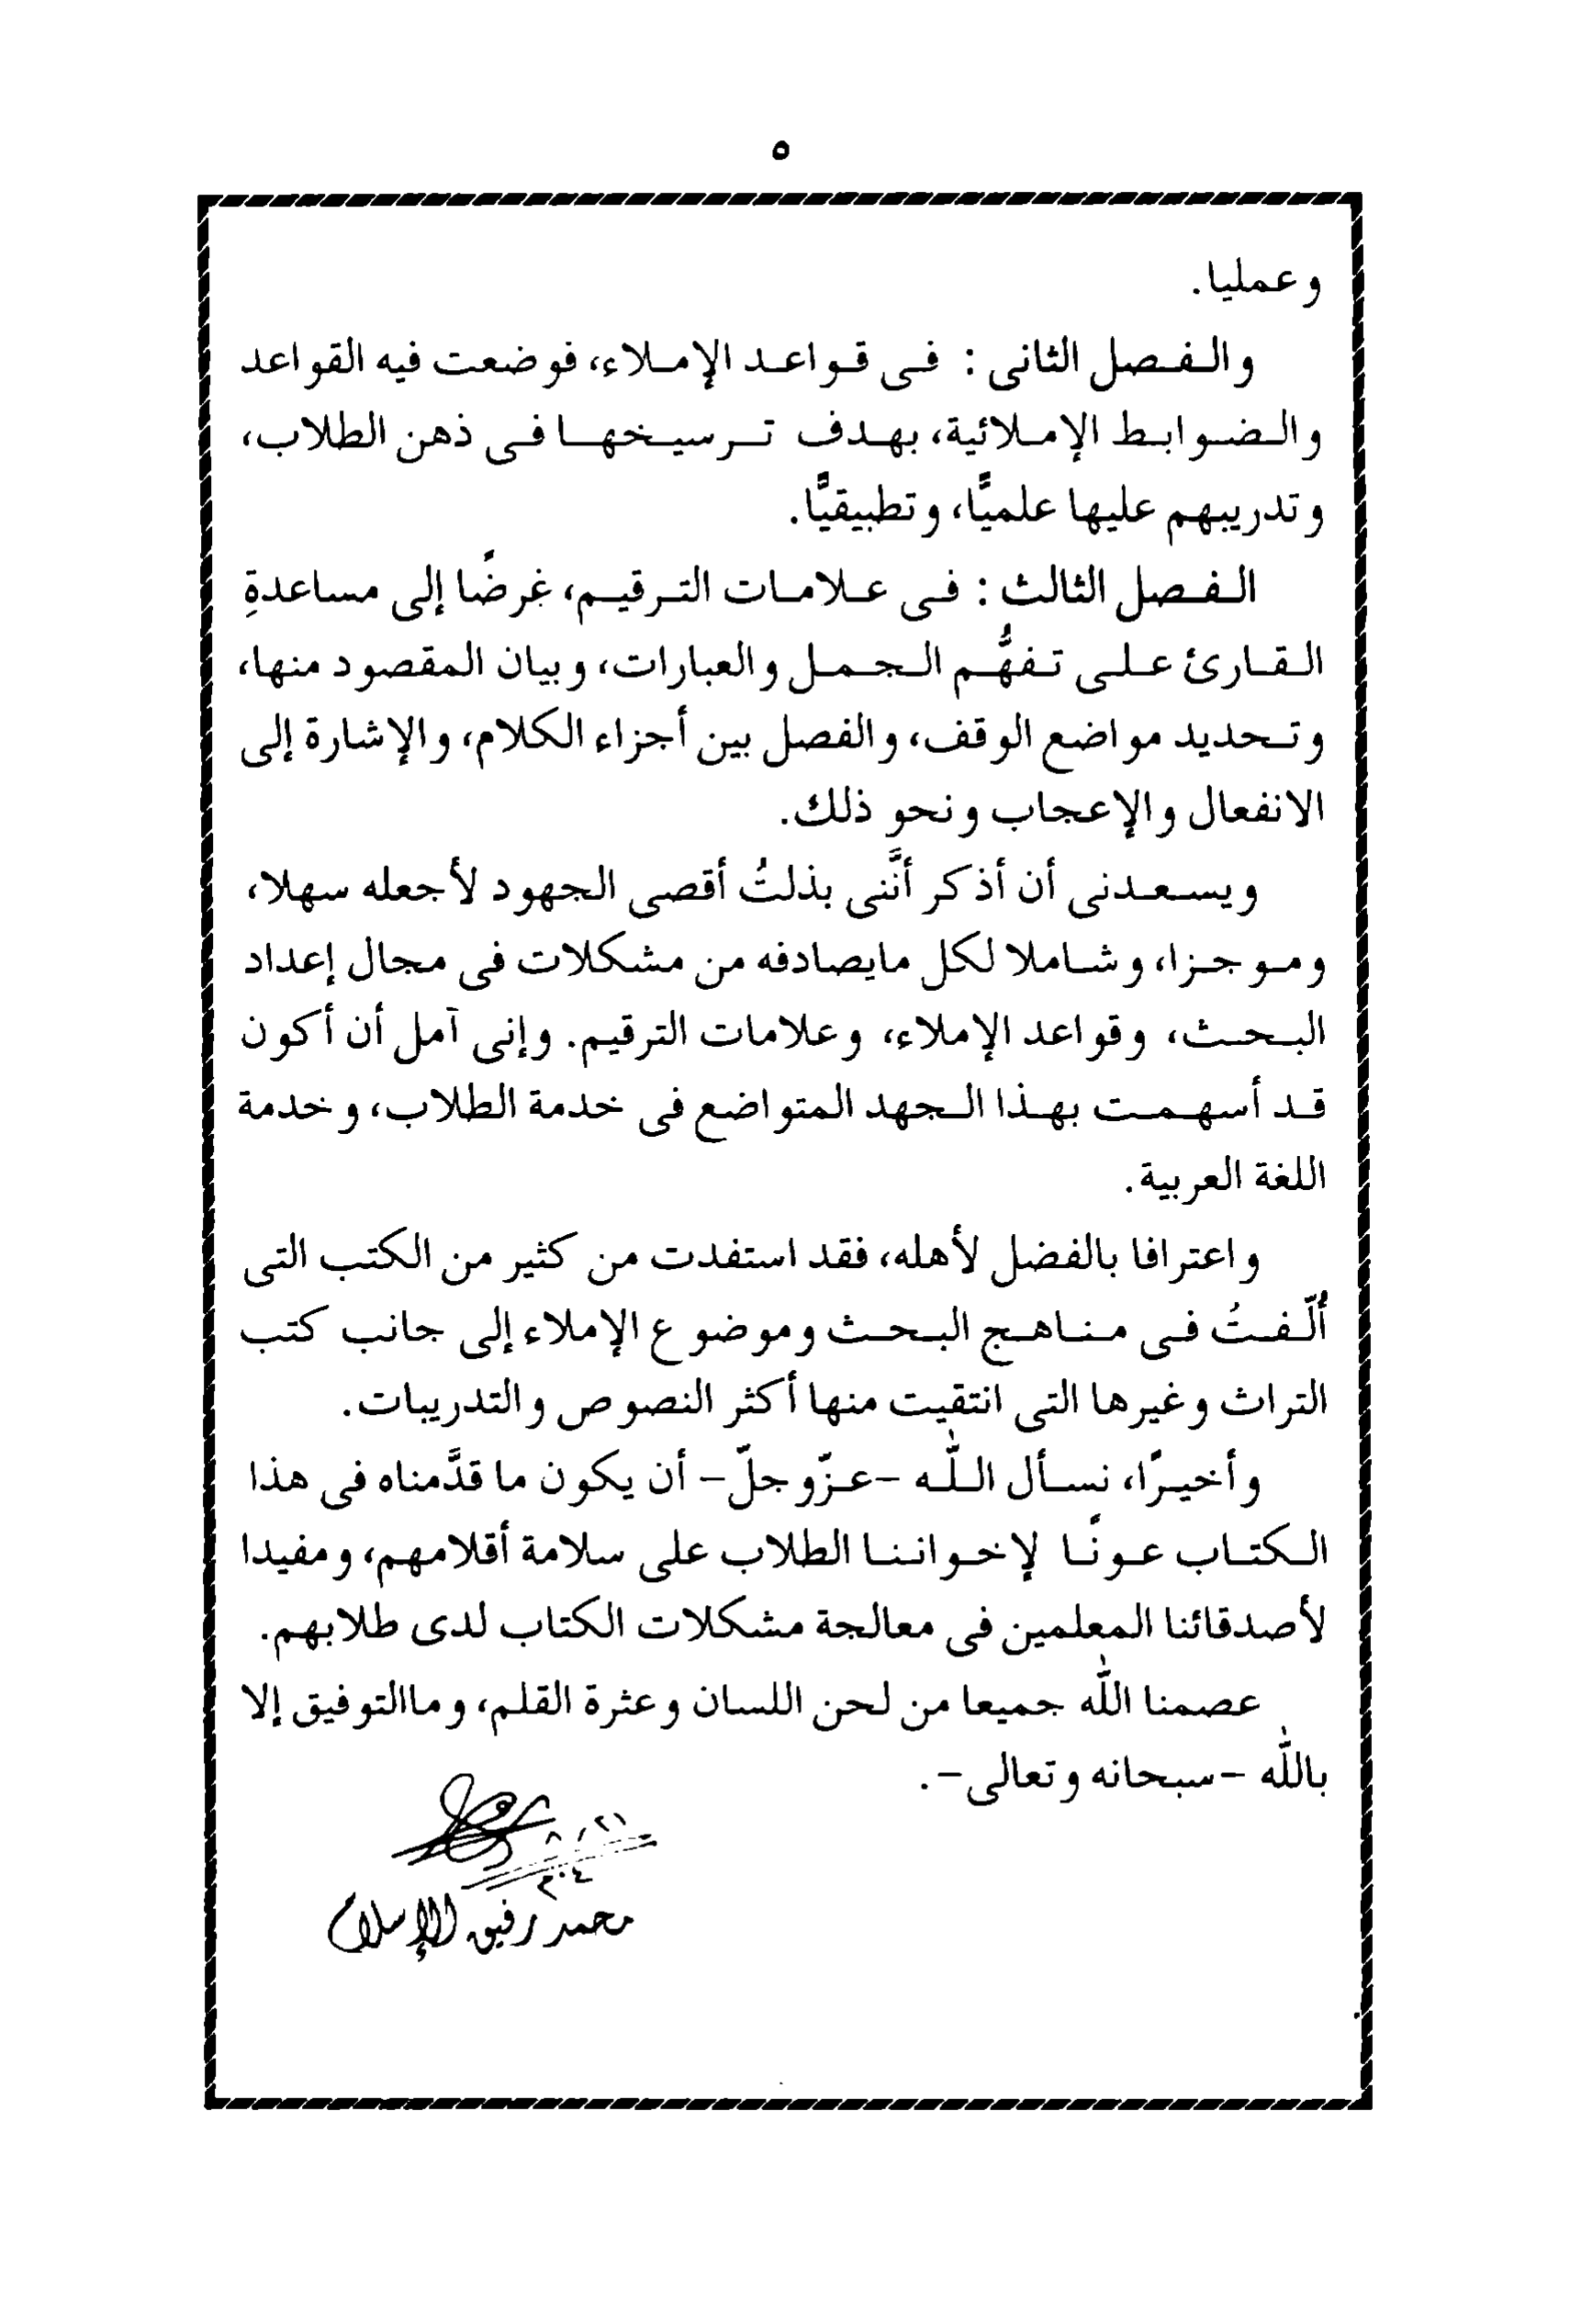 ٥
وعمليا.
والفصل الثانى : فى قواعد الإملاء، فوضعت فيه القواعد
والضوابط الإملائية، بهدف ترسيخها فى ذهن الطلاب،
وتدريبهم عليها علميًّا، وتطبيقيًّا.
الفصل الثالث : فى علامات الترقيم، غرضًا إلى مساعدةِ
القارئ على تفهُّم الجمل والعبارات، وبيان المقصود منها،
وتحديد مواضع الوقف، والفصل بين أجزاء الكلام، والإشارة إلى
الانفعال والإعجاب ونحو ذلك.
ويسعدنى أن أذكر أنَّنى بذلتُ أقصى الجهود لأجعله سهلا،
وموجزا، وشاملا لكل مايصادفه من مشكلات فى مجال إعداد
البحث، وقواعد الإملاء، وعلامات الترقيم. وإنى آمل أن أكون
قد أسهمت بهذا الجهد المتواضع فى خدمة الطلاب، وخدمة
اللغة العربية.
واعترافا بالفضل لأهله، فقد استفدت من كثير من الكتب التى
أُلّفتُ فى مناهج البحث وموضوع الإملاء إلى جانب كتب
التراث وغيرها التى انتقيت منها أكثر النصوص والتدريبات.
وأخيرًا، نسأل اللّٰه -عزّوجلّ- أن يكون ما قدَّمناه فى هذا
الكتاب عونًا لإخواننا الطلاب على سلامة أقلامهم، ومفيدا
لأصدقائنا المعلمين فى معالجة مشكلات الكتاب لدى طلابهم.
عصمنا اللّٰه جميعا من لحن اللسان وعثرة القلم، وماالتوفيق إلا
باللّٰه -سبحانه وتعالى-.
محمد رفيق الإسلام